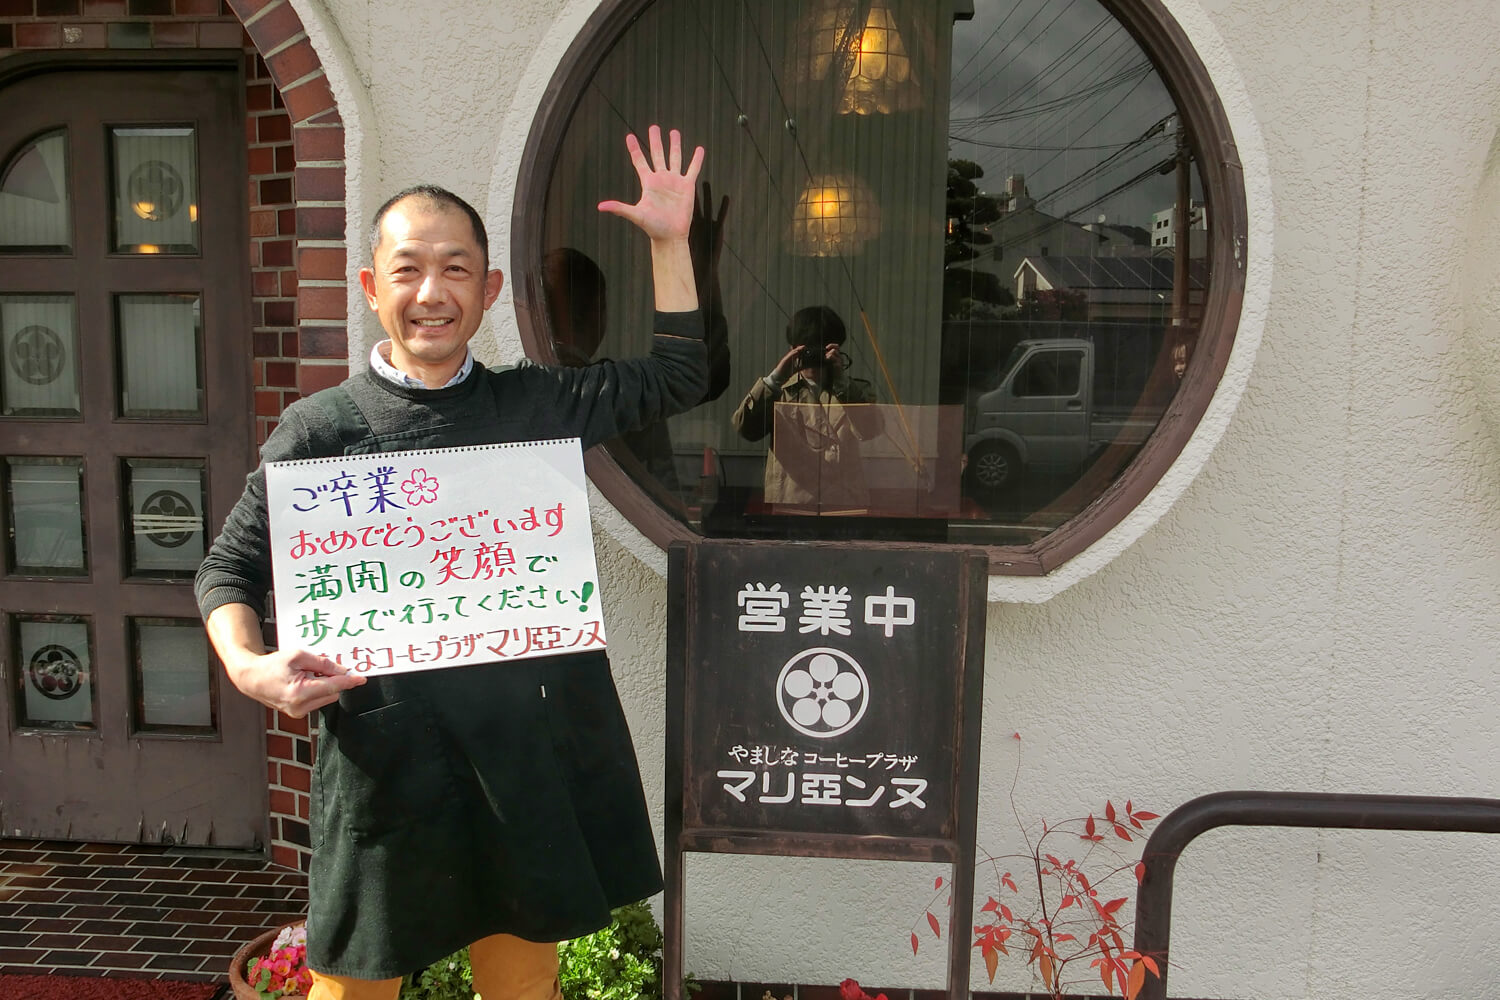 ご卒業
おめでとうございます
満開の笑顔で
歩んで行ってください!
やましなコーヒープラザマリ亞ンヌ
営業中
やましなコーヒープラザ
マリ亞ンヌ